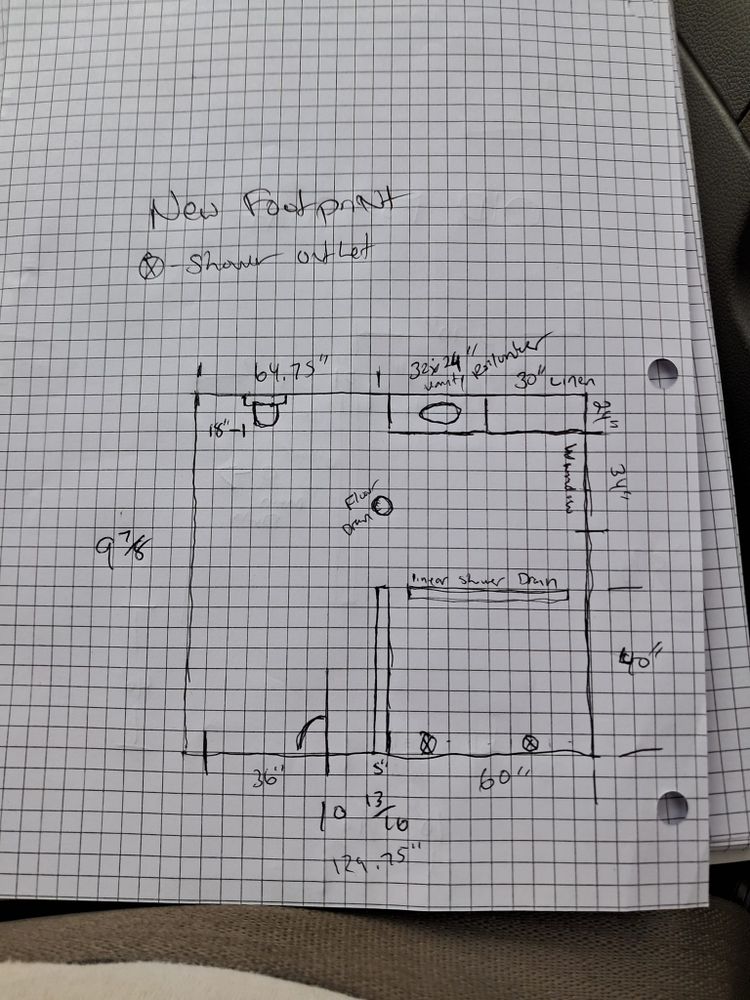 New Footprint
⊗ - Shower outlet
64.75"
32x24"
vanity
30" Linen
18"-1
24"
Window
34"
Floor
Drain
9 7/8
Linear Shower Drain
40"
36"
5"
60"
10 13/16
129.75"